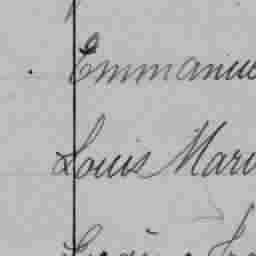 Emmanue
Louis Mari